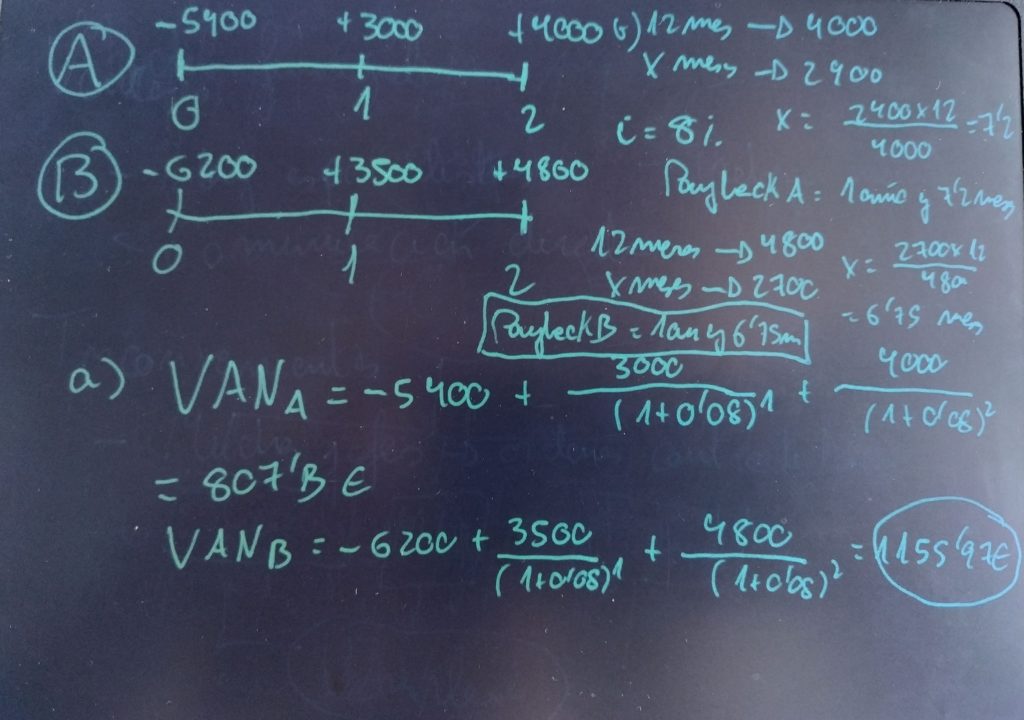 A -5400 +3000 +4000
0 1 2
B -6200 +3500 +4800
0 1 2
b) 12 mes → 4000
X meses → 2400
i = 8%
X = 2400x12 / 4000 = 7'2
Payback A = 1 año y 7'2 mes
12 meses → 4800
X meses → 2700
X = 2700x12 / 480
= 6'75 mes
Payback B = 1 an y 6'75m
a) VAN A = -5400 + 3000 / (1+0'08)^1 + 4000 / (1+0'08)^2
= 807'13 €
VAN B = -6200 + 3500 / (1+0'08)^1 + 4800 / (1+0'08)^2 = 1155'97€